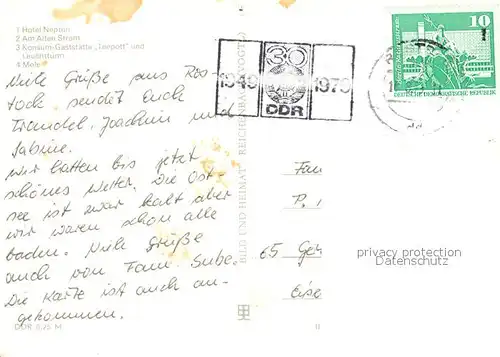 1 Hotel Neptun
2 Am Alten Strom
3 Konsum-Gaststätte „Teepott" und
Leuchtturm
4 Mole
Viele Grüße aus Ros-
tock sendet Euch
Traudel, Joachim und
Sabine.
Wir hatten bis jetzt
schönes Wetter. Die Ost-
see ist zwar kalt aber
wir waren schon alle
baden. Viele Grüße
auch von Fam. Sube.
Die Karte ist auch an-
gekommen.
DDR 0,25 M
BILD UND HEIMAT REICHENBACH (VOGTL)
30
1949 1979
DDR
10
DEUTSCHE DEMOKRATISCHE REPUBLIK
Fam
P.
65 Ger
Eise
privacy protection
Datenschutz